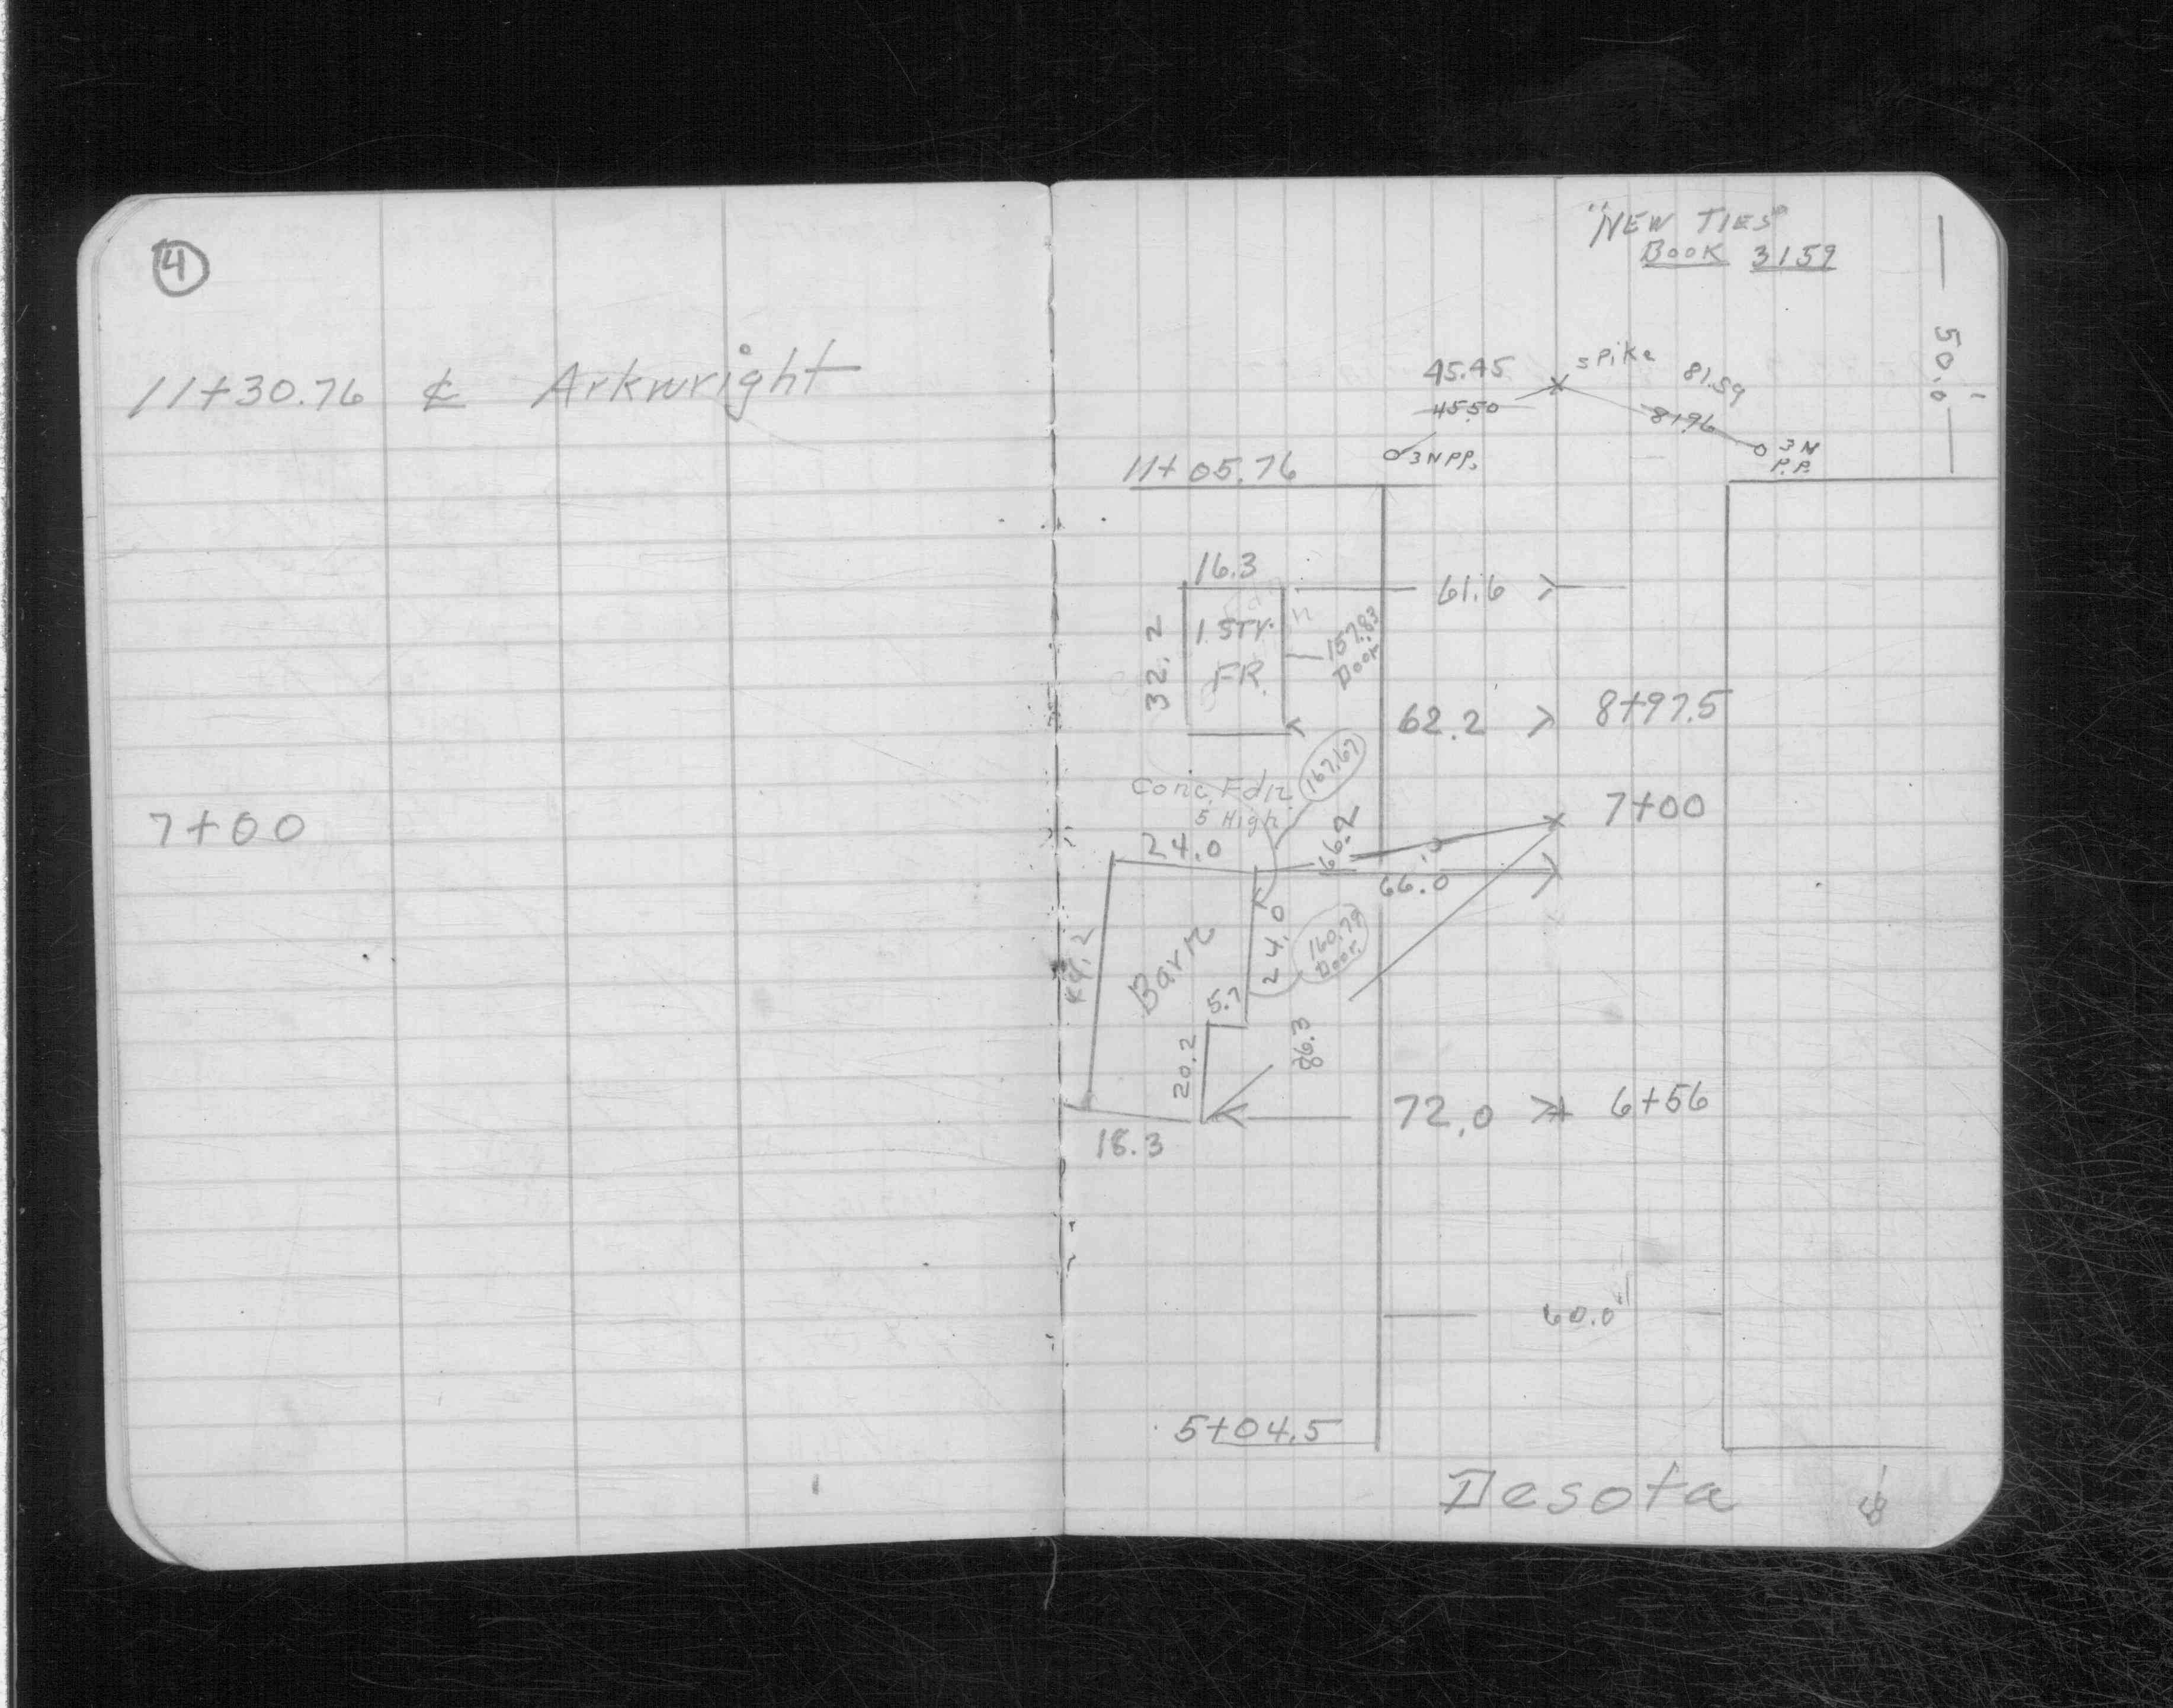 4
11+30.76 ₵ Arkwright
7+00
"NEW TIES"
BOOK 3159
50.0'
spike
45.45
45.50
81.59
81.96
3N PP.
3N
P.P.
11+05.76
16.3
61.6
32.2
1 STY.
FR.
157.83
Door
62.2
8+97.5
Conc. Fdn.
5 High
167.67
7+00
24.0
66.2
66.0
44.2
Barn
24.0
160.79
Door
5.7
20.2
86.3
72.0
6+56
18.3
60.0'
5+04.5
Desota